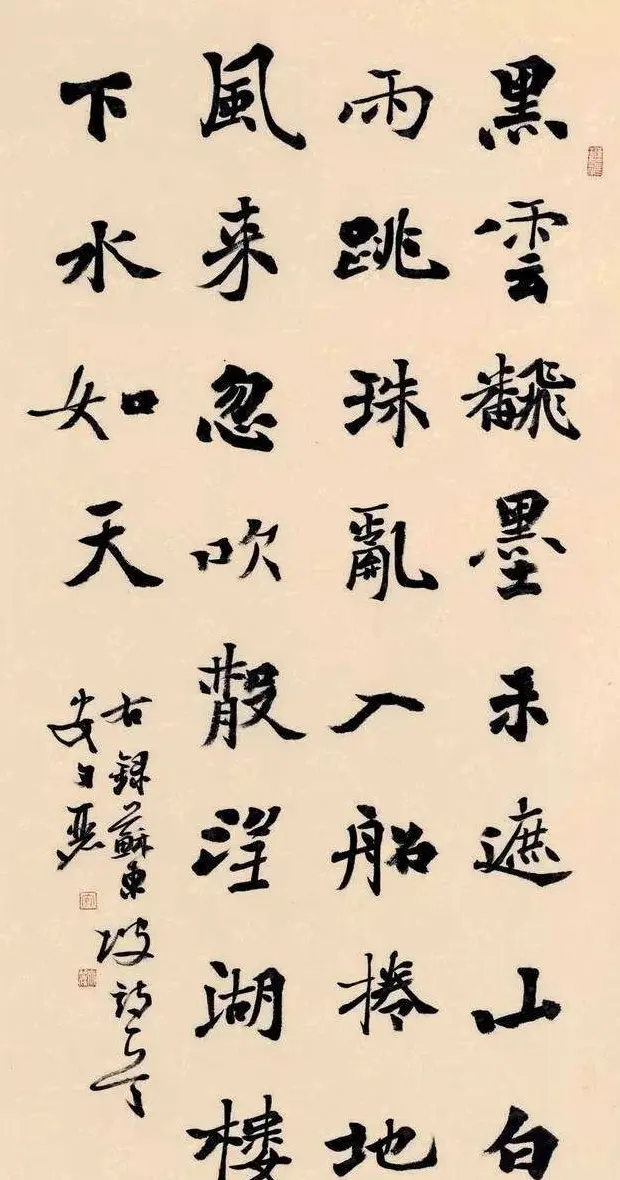 黑雲飜墨未遮山白
雨跳珠亂入船捲地
風来忽吹散望湖樓
下水如天
右録蘇東坡詩